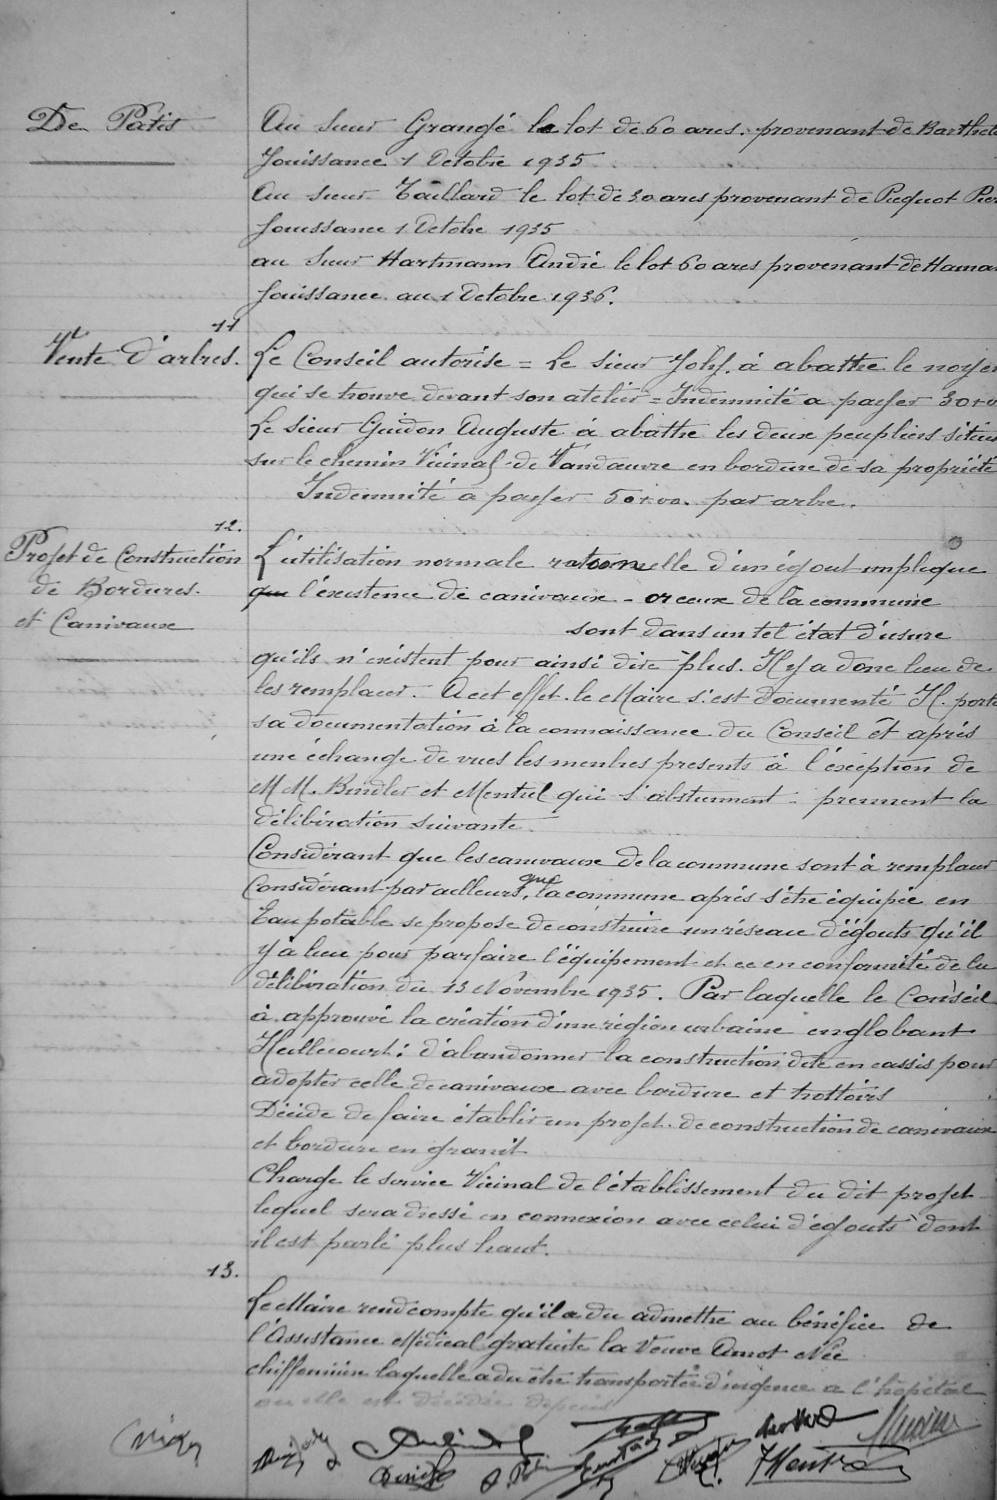 De Pâtis
Au sieur Grangé le lot de 60 ares. provenant de
Jouissance 1 Octobre 1935
Au sieur Taillard le lot de 30 ares provenant de Picquot
Jouissance 1 Octobre 1935
au sieur Hartmann André le lot 60 ares provenant de
Jouissance au 1 Octobre 1936.
11
Vente d'arbres.
Le Conseil autorise = Le sieur Joly. à abattre le noyer
qui se trouve devant son atelier = Indemnité a payer
Le sieur Guidon Auguste à abattre les deux peupliers situés
sur le chemin Vicinal de Vandœuvre en bordure de sa propriété
Indemnité a payer par arbre.
12.
Projet de Construction
de Bordures.
et Canivaux
L'utilisation normale rationnelle d'un égout implique
que l'existence de canivaux - or ceux de la commune
sont dans un tel état d'usure
qu'ils n'existent pour ainsi dire plus. Il y a donc lieu de
les remplacer. A cet effet. le Maire s'est documenté Il. porte
sa documentation à la connaissance du Conseil Et après
une échange de vues les membres presents à l'éxception de
M M. Bindler et Mentrel qui s'abstiennent prennent la
délibération suivante.
Considérant que les canivaux de la commune sont à remplacer
Considérant par ailleurs, que la commune après s'être équipée en
Eau potable se propose de construire un réseau d'égouts qu'il
y à lieu pour parfaire l'équipement et ce en conformité de la
délibération du 13 Novembre 1935. Par laquelle le Conseil
à approuvé la création d'une région urbaine englobant
Heillecourt: d'abandonner la construction dite en cassis pour
adopter celle de canivaux avec bordure et trottoirs
Décide de faire établir un projet de construction de canivaux
et bordure en granit
Charge le service Vicinal de l'établissement du dit projet
lequel sera dressé en connexion avec celui d'égouts dont
il est parlé plus haut.
13.
Le Maire rend compte qu'il a du admettre au bénéfice de
l'Assistance Médical gratuite la Veuve Amot Née
laquelle a du être transportée d'urgence a l'hôpital
ou elle est décédée depuis